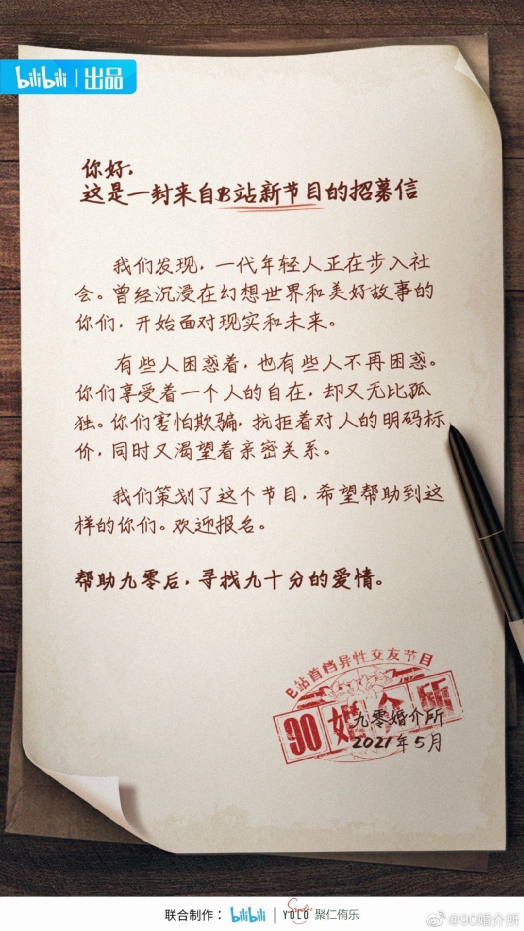 bilibili | 出品
你好，
这是一封来自B站新节目的招募信
我们发现，一代年轻人正在步入社
会。曾经沉浸在幻想世界和美好故事的
你们，开始面对现实和未来。
有些人困惑着，也有些人不再困惑。
你们享受着一个人的自在，却又无比孤
独。你们害怕欺骗，抗拒着对人的明码标
价，同时又渴望着亲密关系。
我们策划了这个节目，希望帮助到这
样的你们。欢迎报名。
帮助九零后，寻找九十分的爱情。
B站首档异性交友节目
90婚介所
九零婚介所
2021年5月
联合制作： bilibili | YOLO 聚仁侑乐
@90婚介所